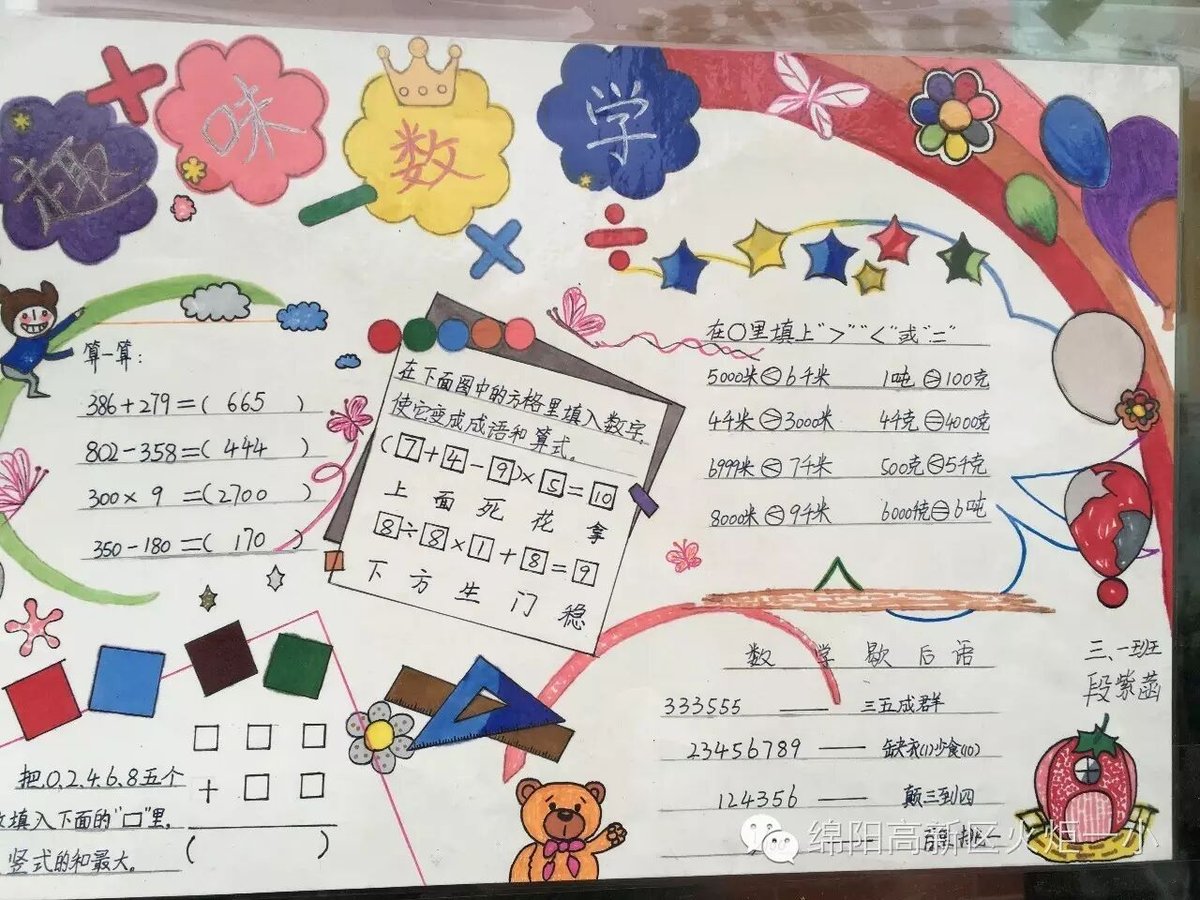 趣味数学
算一算：
386+279=( 665 )
802-358=( 444 )
300× 9 =(2700 )
350-180=( 170 )
在下面图中的方格里填入数字。
使它变成成语和算式。
(7+4-9)×5=10
上面死花拿
8÷8×1+8=9
下方生门稳
在○里填上">""<"或"="
5000米<6千米 1吨=100克
4千米>3000米 4千克=4000克
6999米<7千米 500克<5千克
8000米<9千米 6000千克=6吨
数学歇后语
333555 —— 三五成群
23456789 —— 缺衣(1)少食(10)
124356 —— 颠三到四
百里挑一
三、一班
段紫菡
□ □ □
+ □ □
( )
把0、2、4、6、8五个
填入下面的"□"里，
竖式的和最大。
绵阳高新区火炬一小